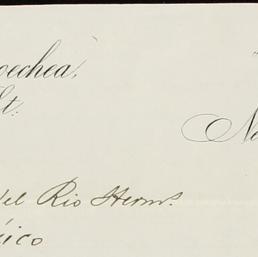 oechea,
St.
Ne
del Rio Herms.
xico